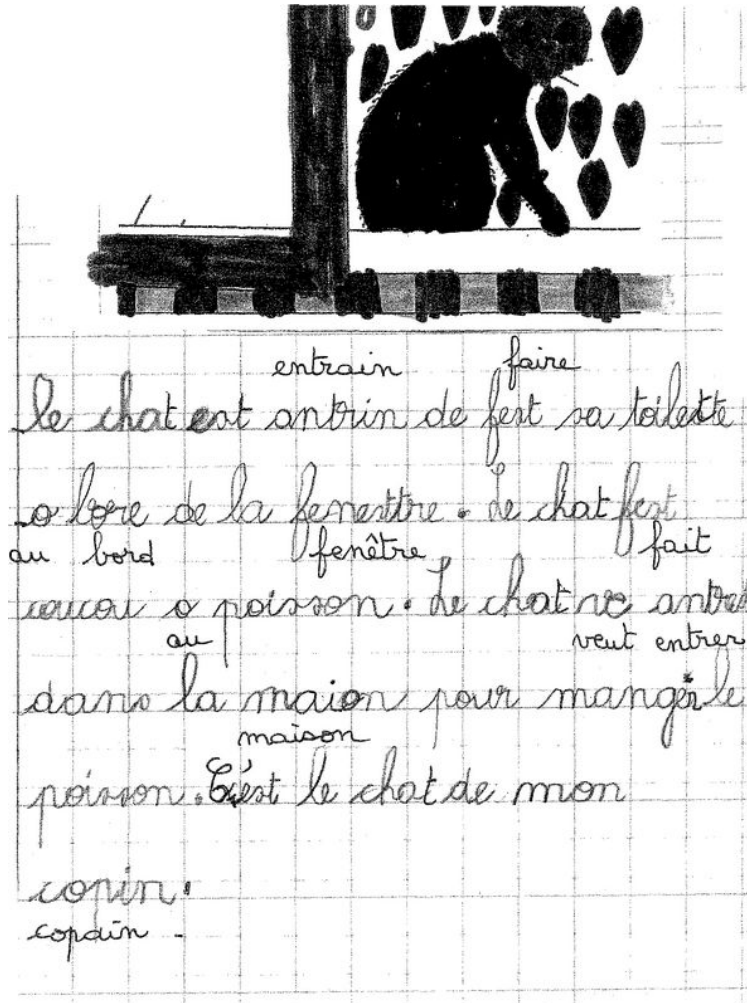 entrain faire
le chat est antrin de fest sa toilestte
o bore de la fenesttre. Le chat fest
au bord fenêtre fait
coucou o poisson. Le chat ve antrer
au veut entrer
dans la maion pour manger le
maison
poisson. C'est le chat de mon
copin.
copain.